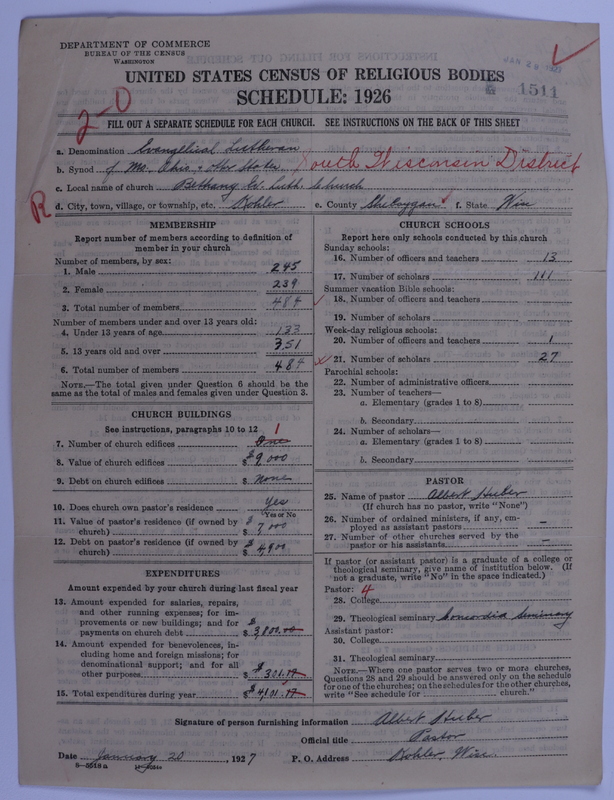 DEPARTMENT OF COMMERCE
BUREAU OF THE CENSUS
WASHINGTON
JAN 29 1927
1511
UNITED STATES CENSUS OF RELIGIOUS BODIES
SCHEDULE: 1926
2-0
FILL OUT A SEPARATE SCHEDULE FOR EACH CHURCH. SEE INSTRUCTIONS ON THE BACK OF THIS SHEET
a. Denomination Evangelical Lutheran
b. Synod of Mo. Ohio & other States South Wisconsin District
c. Local name of church Bethany Ev. Luth. Church
R
d. City, town, village, or township, etc. Kohler e. County Sheboygan f. State Wisc
MEMBERSHIP
Report number of members according to definition of member in your church
Number of members, by sex:
1. Male 245
2. Female 239
3. Total number of members 484
Number of members under and over 13 years old:
4. Under 13 years of age 133
5. 13 years old and over 351
6. Total number of members 484
NOTE.—The total given under Question 6 should be the
same as the total of males and females given under Question 3.
CHURCH BUILDINGS
See instructions, paragraphs 10 to 12
7. Number of church edifices One 1
8. Value of church edifices $9,000
9. Debt on church edifices $ None
10. Does church own pastor's residence Yes
Yes or No
11. Value of pastor's residence (if owned by
church) $ 7,000
12. Debt on pastor's residence (if owned by
church) $ 4900
EXPENDITURES
Amount expended by your church during last fiscal year
13. Amount expended for salaries, repairs,
and other running expenses; for im-
provements or new buildings; and for
payments on church debt $ 3,800.00
14. Amount expended for benevolences, in-
cluding home and foreign missions; for
denominational support; and for all
other purposes $ 301.17
15. Total expenditures during year $ 4,101.17
CHURCH SCHOOLS
Report here only schools conducted by this church
Sunday schools:
16. Number of officers and teachers 13
17. Number of scholars 111
Summer vacation Bible schools:
18. Number of officers and teachers
19. Number of scholars
Week-day religious schools:
20. Number of officers and teachers 1
21. Number of scholars 27
Parochial schools:
22. Number of administrative officers
23. Number of teachers—
a. Elementary (grades 1 to 8)
b. Secondary
24. Number of scholars—
a. Elementary (grades 1 to 8)
b. Secondary
PASTOR
25. Name of pastor Albert Huber
(If church has no pastor, write "None")
26. Number of ordained ministers, if any, em-
ployed as assistant pastors –
27. Number of other churches served by the
pastor or his assistants –
If pastor (or assistant pastor) is a graduate of a college or
theological seminary, give name of institution below. (If
not a graduate, write "No" in the space indicated.)
Pastor: 4
28. College
29. Theological seminary Concordia Seminary
Assistant pastor:
30. College
31. Theological seminary
NOTE.—Where one pastor serves two or more churches,
Questions 28 and 29 should be answered only on the schedule
for one of the churches; on the schedules for the other churches,
write "See schedule for church."
Signature of person furnishing information Albert Huber
Official title Pastor
Date January 20, 1927 P. O. Address Kohler, Wisc.